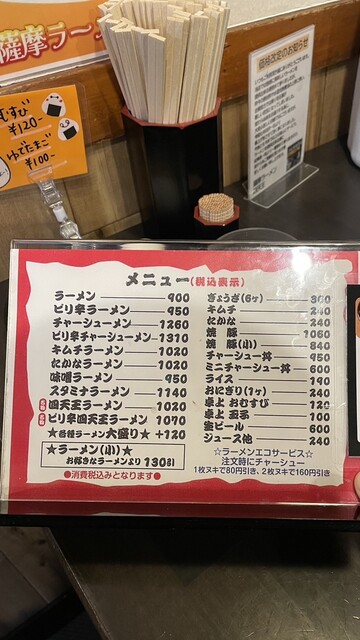 薩摩ラーメン
むすび
¥120-
ゆでたまご
¥100-
価格改定のお知らせ
メニュー(税込表示)
ラーメン 900
ピリ辛ラーメン 950
チャーシューメン 1260
ピリ辛チャーシューメン 1310
キムチラーメン 1020
たかなラーメン 1020
味噌ラーメン 950
スタミナラーメン 1140
四天王ラーメン 1020
ピリ辛四天王ラーメン 1070
★各種ラーメン大盛り★ +120
★ラーメン(小)★
お好きなラーメンより 130引
●消費税込みとなります●
ぎょうざ(6ヶ) 300
キムチ 240
たかな 240
焼 豚 1060
焼 豚(小) 840
チャーシュー丼 950
ミニチャーシュー丼 600
ライス 190
おにぎり(1ヶ) 240
卓上 おむすび 120
卓上 玉子 100
生ビール 600
ジュース他 240
☆ラーメンエコサービス☆
注文時にチャーシュー
1枚ヌキで80円引き、2枚ヌキで160円引き